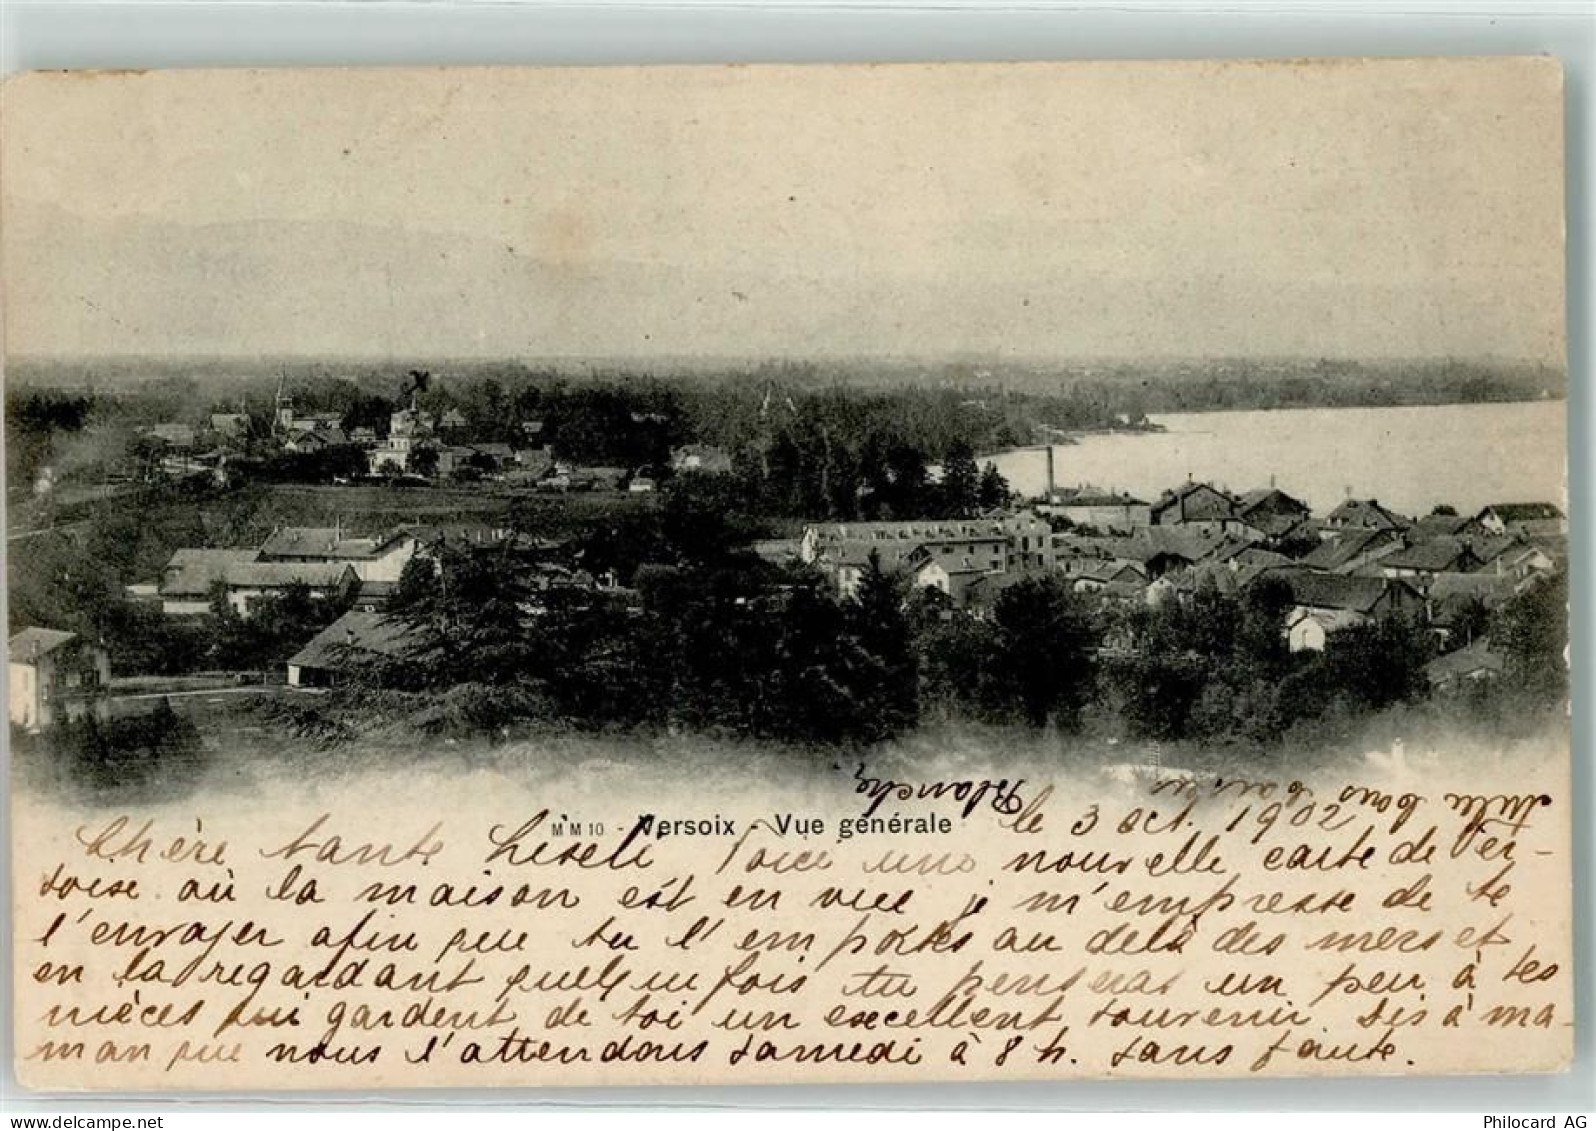 MM10 - Versoix - Vue générale
le 3 oct. 1902
Chère tante Liseli Voici une nouvelle carte de Ver-
soix où la maison est en vue je m'empresse de te
l'envoyer afin que tu l'emportes au delà des mers et
en la regardant quelquefois tu penseras un peu à tes
nièces qui gardent de toi un excellent souvenir. Dis à ma-
man que nous l'attendons samedi à 8 h. sans faute.
bons baisers
Blanche
www.delcampe.net
Philocard AG